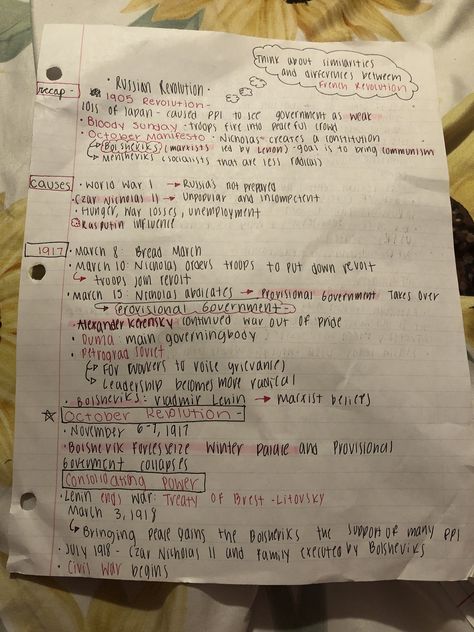 Think about similarities
and differences between
French Revolution
recap -
· Russian Revolution ·
1905 Revolution -
loss of Japan - caused ppl to see government as weak
· Bloody Sunday · troops fire into peaceful crowds
· October Manifesto · Nicholas creates a constitution
↳ Bolsheviks (marxists led by Lenon) · goal is to bring communism
↳ Mensheviks (socialists that are less radical)
causes
· World War 1 → Russia's not prepared
· Czar Nicholas II → Unpopular and incompetent
· Hunger, War losses, unemployment
Rasputin influence
1917
· March 8: Bread March
· March 10: Nicholas orders troops to put down revolt
↳ troops join revolt
· March 15: Nicholas abdicates → Provisional Government Takes over
↳ Provisional Government -
Alexander Kerensky continued war out of pride
· Duma: main governing body
· Petrograd Soviet
↳ For workers to voice grievances
↳ Leadership becomes more radical
· Bolsheviks: Vladmir Lenin → Marxist beliefs
☆ October Revolution -
· November 6-7, 1917
· Bolshevik Forces seize Winter Palace and Provisional
Government collapses
Consolidating Power
· Lenin ends war: Treaty of Brest-Litovsky
March 3, 1918
↳ Bringing peace gains the Bolsheviks the support of many ppl
· July 1918 - Czar Nicholas II and family executed by Bolsheviks
· Civil War begins